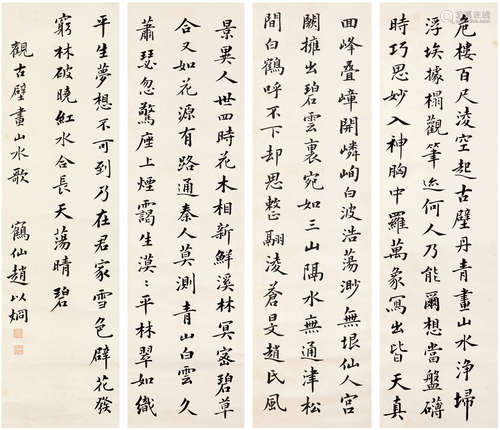 危樓百尺淩空起古壁丹青畫山水淨掃
浮埃據榻觀筆迹何人乃能爾想當盤礴
時巧思妙入神胸中羅萬象寫出皆天真
回峰叠嶂開嶙峋白波浩蕩渺無垠仙人宮
闕擁出碧雲裏宛如三山隔水無通津松
間白鶴呼不下却思整翮淩蒼旻趙氏風
景異人世四時花木相新鮮溪林冥密碧草
合又如花源有路通秦人莫測青山白雲久
蕭瑟忽驚座上煙靄生漠〻平林翠如織
平生夢想不可到乃在君家雪色壁花發
窮林破曉紅水合長天蕩晴碧
觀古壁畫山水歌 鶴仙趙以炯